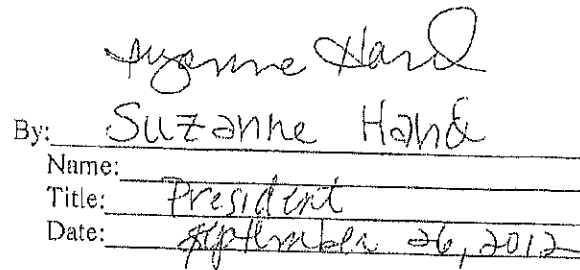 Suzanne Hand
By: Suzanne Hand
Name:
Title: President
Date: September 26, 2012